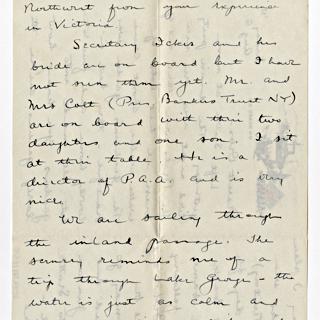 Northwest from your experience
in Victoria
Secretary Ickes and his
bride are on board but I have
not seen them yet. Mr. and
Mrs Colt (Pres, Bankers Trust NY)
are on board with their two
daughters and one son. I sit
at their table. He is a
director of P.A.A. and is very
nice.
We are sailing through
the inland passage. The
scenery reminds me of a
trip through Lake George - the
water is just as calm and